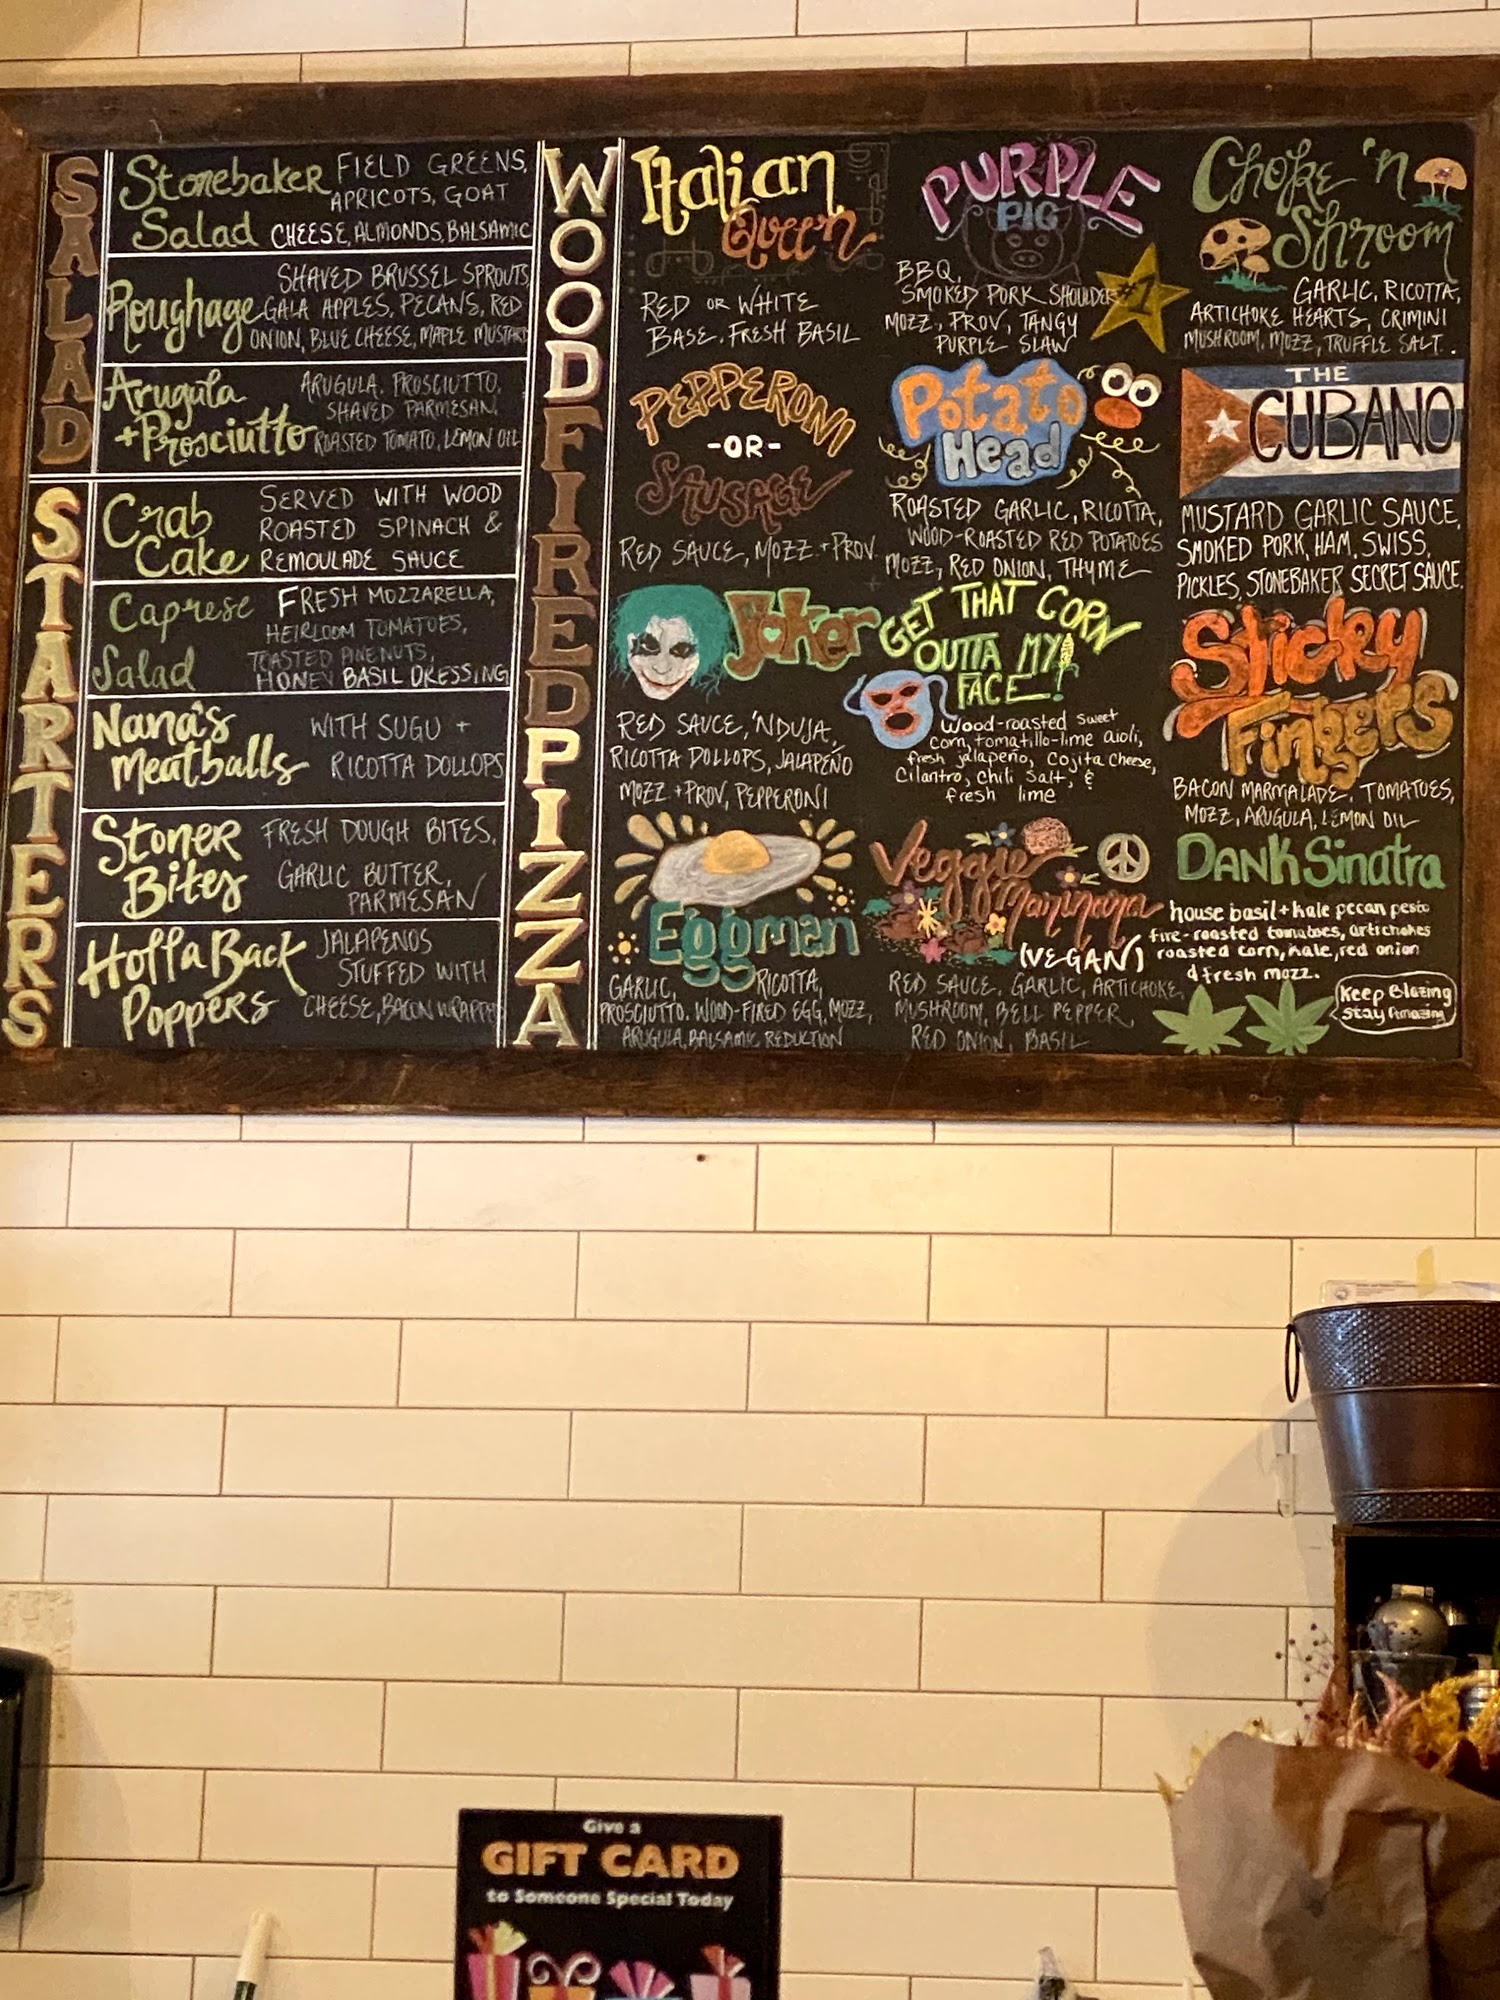 SALAD
Stonebaker Salad
FIELD GREENS,
APRICOTS, GOAT
CHEESE, ALMONDS, BALSAMIC
Roughage
SHAVED BRUSSEL SPROUTS
GALA APPLES, PECANS, RED
ONION, BLUE CHEESE, MAPLE MUSTARD
Arugula
+Prosciutto
ARUGULA, PROSCIUTTO,
SHAVED PARMESAN,
ROASTED TOMATO, LEMON OIL
STARTERS
Crab
Cake
SERVED WITH WOOD
ROASTED SPINACH &
REMOULADE SAUCE
Caprese
Salad
FRESH MOZZARELLA,
HEIRLOOM TOMATOES,
TOASTED PINENUTS,
HONEY BASIL DRESSING
Nana's
Meatballs
WITH SUGU +
RICOTTA DOLLOPS
Stoner
Bites
FRESH DOUGH BITES,
GARLIC BUTTER,
PARMESAN
Holla Back
Poppers
JALAPENOS
STUFFED WITH
CHEESE, BACON WRAPPED
WOOD FIRED PIZZA
Italian
Queen
RED OR WHITE
BASE. FRESH BASIL
PURPLE
PIG
#1
BBQ,
SMOKED PORK SHOULDER
MOZZ, PROV, TANGY
PURPLE SLAW
Choke 'n
Shroom
GARLIC, RICOTTA,
ARTICHOKE HEARTS, CRIMINI
MUSHROOM, MOZZ, TRUFFLE SALT.
PEPPERONI
-OR-
SAUSAGE
RED SAUCE, MOZZ + PROV.
Potato
Head
ROASTED GARLIC, RICOTTA,
WOOD-ROASTED RED POTATOES
MOZZ, RED ONION, THYME
THE
CUBANO
MUSTARD GARLIC SAUCE,
SMOKED PORK, HAM, SWISS,
PICKLES, STONEBAKER SECRET SAUCE.
Joker
RED SAUCE, 'NDUJA,
RICOTTA DOLLOPS, JALAPEÑO
MOZZ + PROV, PEPPERONI
GET THAT CORN
OUTTA MY
FACE!
Wood-roasted sweet
corn, tomatillo-lime aioli,
fresh jalapeño, Cojita cheese,
Cilantro, Chili Salt, &
fresh lime
Sticky
Fingers
BACON MARMALADE, TOMATOES,
MOZZ, ARUGULA, LEMON OIL
Eggman
GARLIC, RICOTTA,
PROSCIUTTO. WOOD-FIRED EGG, MOZZ,
ARUGULA, BALSAMIC REDUCTION
Veggie
Marinara
(VEGAN)
RED SAUCE, GARLIC, ARTICHOKE,
MUSHROOM, BELL PEPPER,
RED ONION, BASIL
DANK Sinatra
house basil + kale pecan pesto
fire-roasted tomatoes, artichokes
roasted corn, kale, red onion
& fresh mozz.
Keep Blazing
Stay Amazing
Give a
GIFT CARD
to Someone Special Today